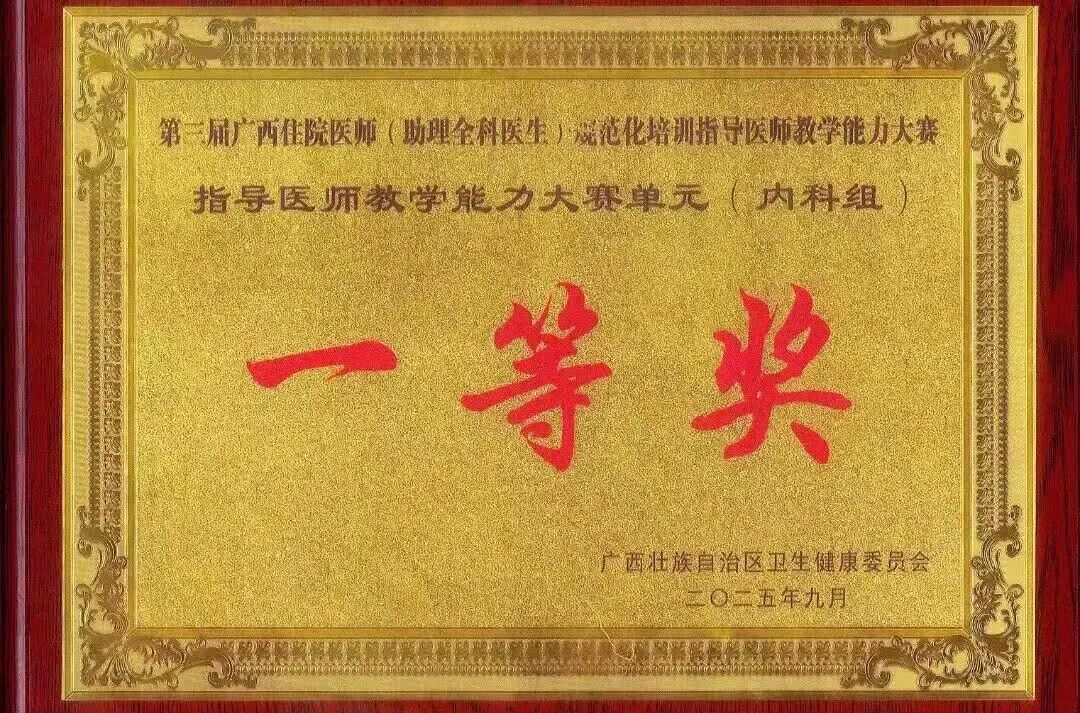 第三届广西住院医师（助理全科医生）规范化培训指导医师教学能力大赛
指导医师教学能力大赛单元（内科组）
一等奖
广西壮族自治区卫生健康委员会
二〇二五年九月